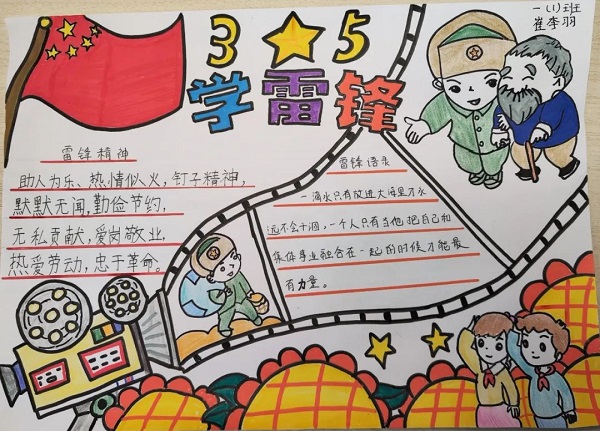 一(1)班
崔李羽
3 5
学雷锋
雷锋精神
助人为乐、热情似火,钉子精神,
默默无闻,勤俭节约,
无私贡献,爱岗敬业,
热爱劳动,忠于革命。
雷锋语录
一滴水只有放进大海里才永
远不会干涸,一个人只有当他把自己和
集体事业融合在一起的时候才能最
有力量。